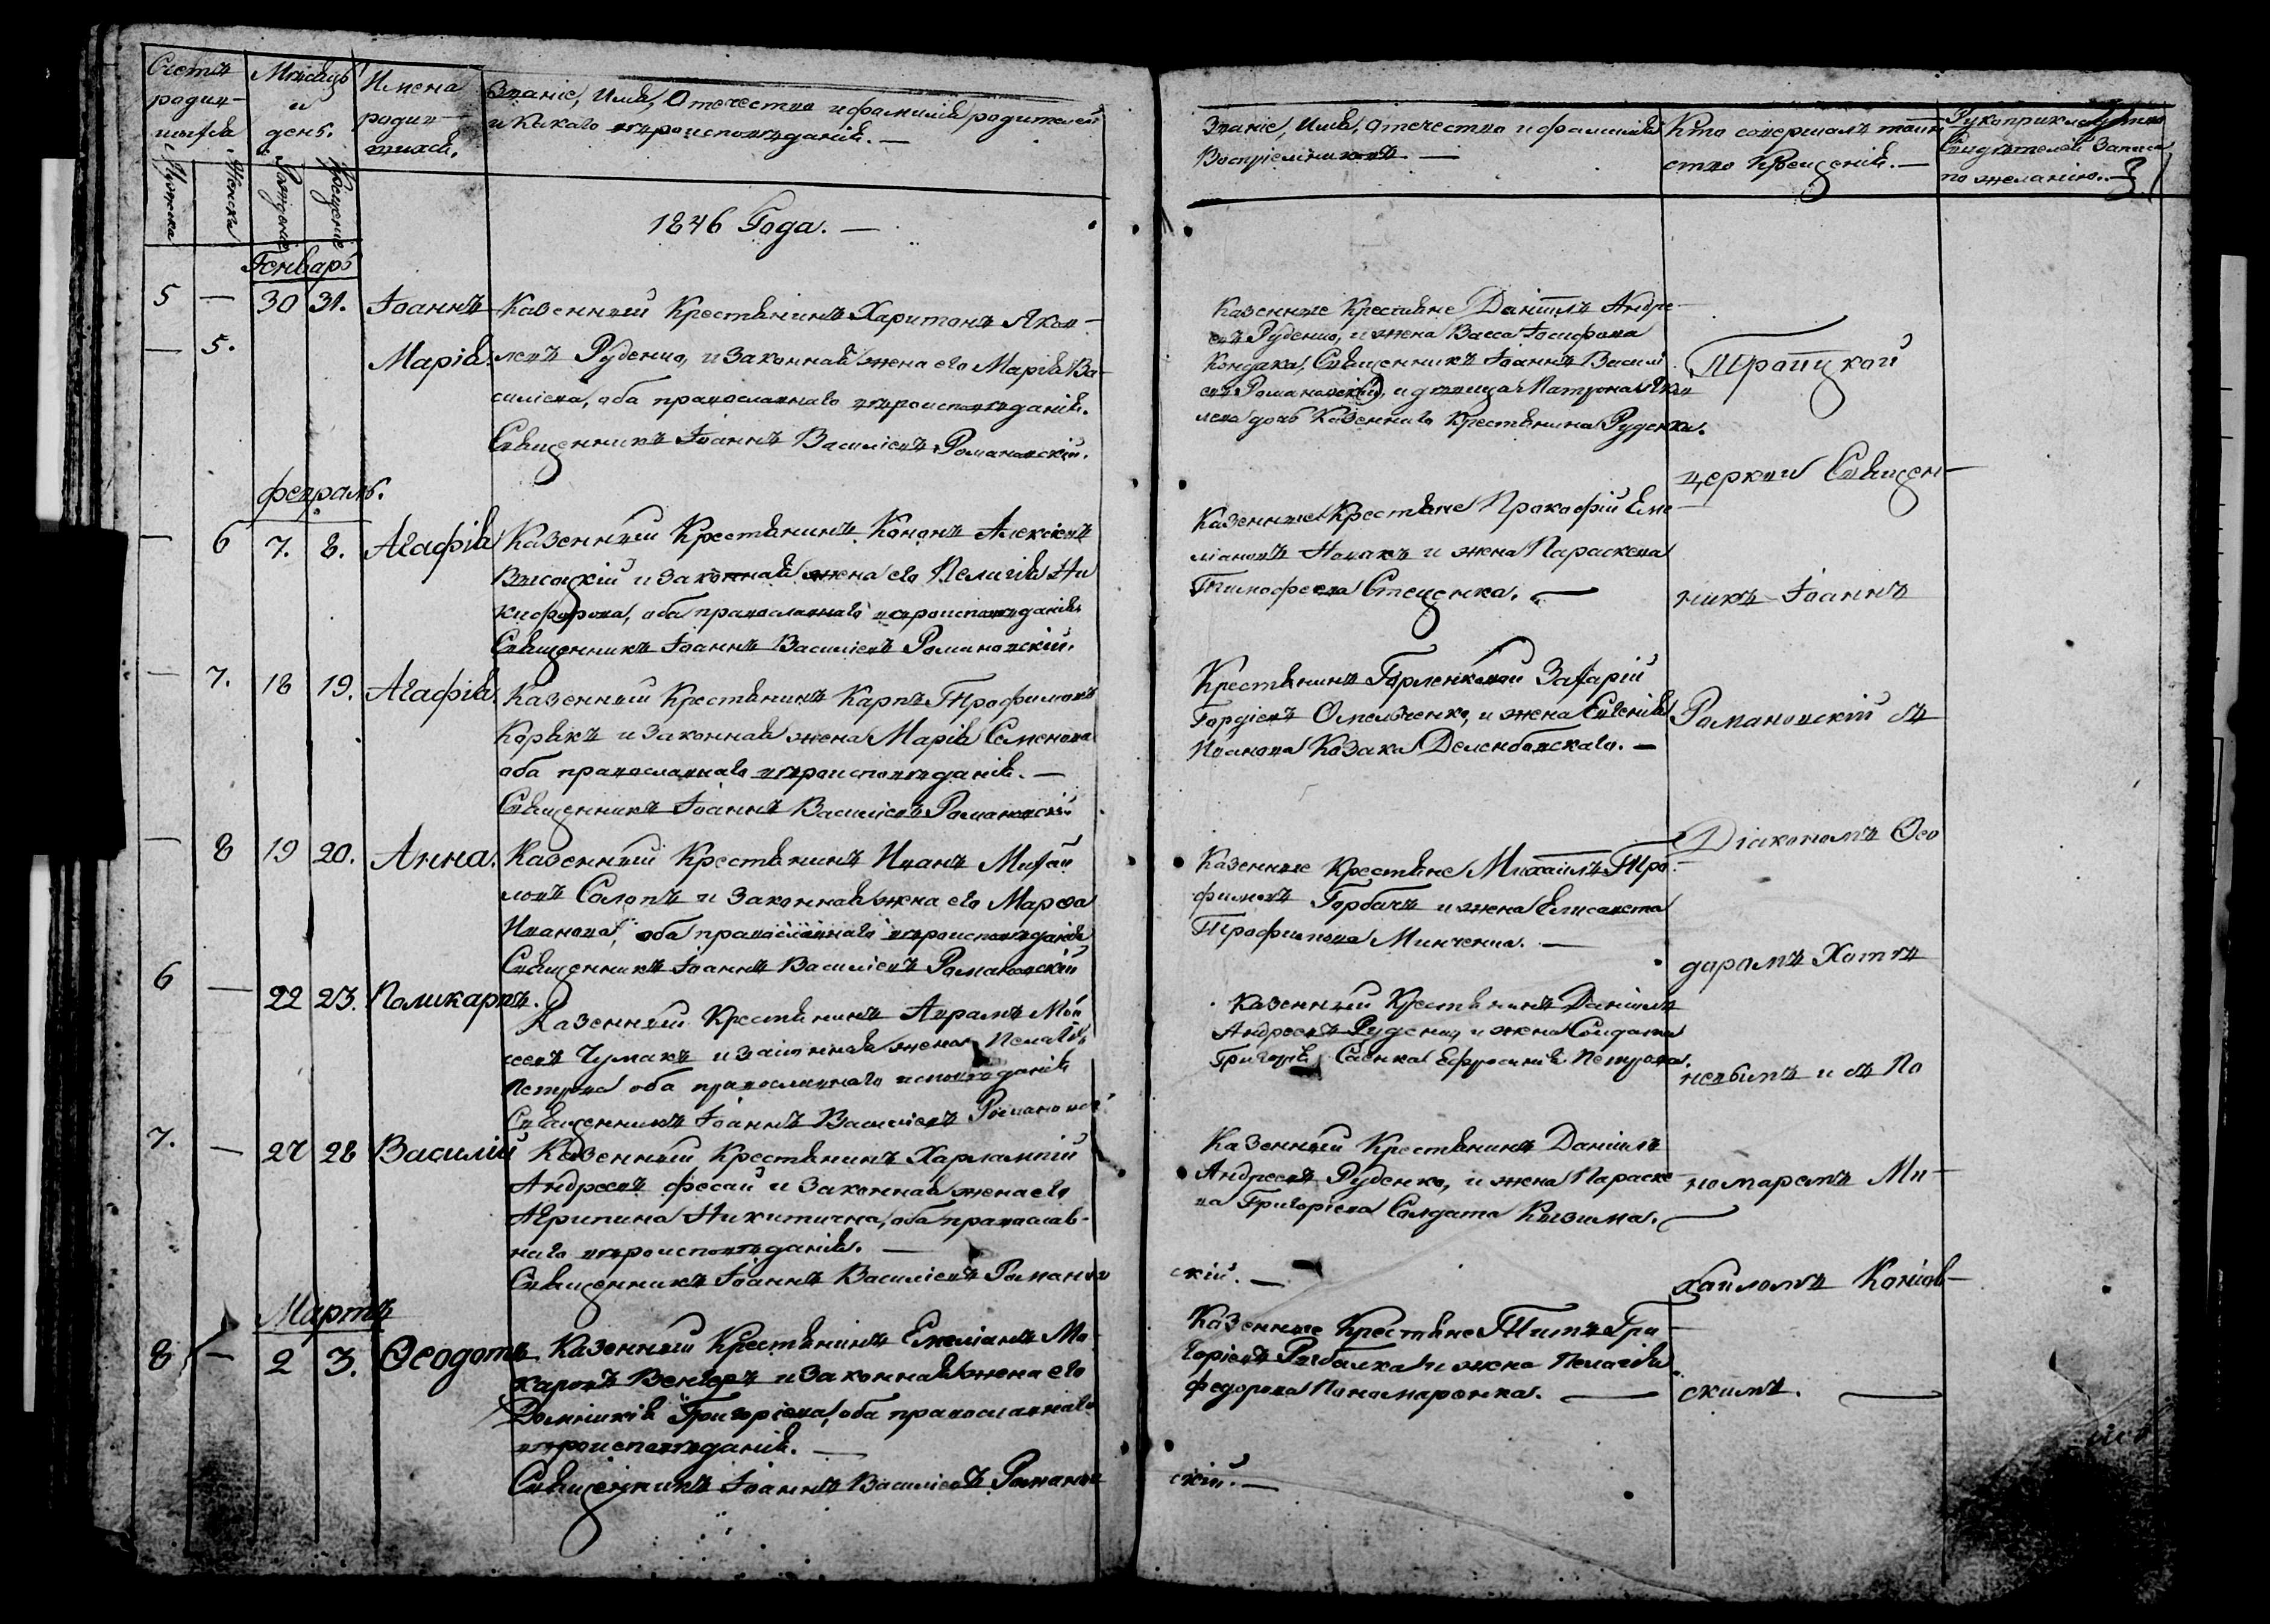 Счетъ родив-
шихся
Мужеска
Женска
Мѣсяцъ
и
день.
Рожденіе
Крещеніе
Имена
родив-
шихся.
Званіе, Имя, Отечество и фамилія родителей
и какаго вѣроисповѣданія. —
Званіе, Имя, Отечество и фамилія
Воспріемниковъ —
Кто совершалъ таин
ство Крещенія. —
Рукоприкладство
Свидѣтелей Записи
по желанію. —
3
1846 Года. —
Генварь
5 — 30 31. Іоаннъ
— 5. Марія.
Казенный Крестянинъ Харитонъ Яков-
левъ Руденко, и законная жена его Марія Ва-
силіева, оба православнаго вѣроисповѣданія.
Священникъ Іоаннъ Василіевъ Романовскій.
Казенные Крестяне Даніилъ Андре-
евъ Руденко, и жена Васса Іосифова
Кондака, Священникъ Іоаннъ Василі
евъ Романовскій, и дѣвица Матрона Яков
лева дочь Казеннаго Крестянина Руденка.
февраль.
— 6 7. 8. Агафія
Казенный Крестянинъ Кононъ Алексіевъ
Высоцкій и законная жена его Пелагія Ни
кифорова, оба православнаго вѣроисповѣданія
Священникъ Іоаннъ Василіевъ Романовскій.
Казенные Крестяне Прокофій Еме-
ліановъ Новакъ и жена Параскева
Тимофеева Стеценка. —
— 7. 18 19. Агафія.
Казенный Крестянинъ Карпъ Трофимовъ
Корякъ и законная жена Марія Семенова
оба православнаго вѣроисповѣданія. —
Священникъ Іоаннъ Василіевъ Романовскій
Крестянинъ Горленковой Захарій
Гордіевъ Омельченко, и жена Евгенія
Иванова Козака Деленбовскаго. —
— 8 19 20. Анна.
Казенный Крестянинъ Иванъ Михай
ловъ Салопъ и законная жена его Марѳа
Иванова, оба православнаго вѣроисповѣданія
Священникъ Іоаннъ Василіевъ Романовскій
Казенные Крестяне Михаилъ Тро-
фимовъ Горбачъ и жена Елисавета
Трофимова Минченка. —
6 — 22 23. Поликарпъ.
Казенный Крестянинъ Аврамъ Мои
сеевъ Чумакъ и законная жена Пелагія
Петрова оба православнаго исповѣданія
Священникъ Іоаннъ Василіевъ Романовск
Казенный Крестянинъ Даніилъ
Андреевъ Руденко, и жена Солдата
Григорія Саенка Ефросинія Петрова.
7. — 27 28 Василій
Казенный Крестянинъ Харлампій
Андреевъ Фесай и законная жена его
Агрипина Никитична, оба православ-
наго вѣроисповѣданія. —
Священникъ Іоаннъ Василіевъ Романов
скій. —
Казенный Крестянинъ Даніилъ
Андреевъ Руденко, и жена Параске
ва Григоріева Солдата Кизима.
Мартъ
8 — 2 3. Ѳеодотъ
Казенный Крестянинъ Емеліанъ Ма
каровъ Венгеръ и законная жена его
Домникія Григоріева, оба православнаго
вѣроисповѣданія. —
Священникъ Іоаннъ Василіевъ Романов
скій. —
Казенные Крестяне Титъ Гри-
горіевъ Рыбалка и жена Пелагія
Федорова Панамаренка. —
Троицкой
церкви Священ-
никъ Іоаннъ
Романовскій съ
Діакономъ Ѳео
даромъ Хотъ
невымъ и съ По
номаремъ Ми-
хайломъ Коніов-
скимъ. —